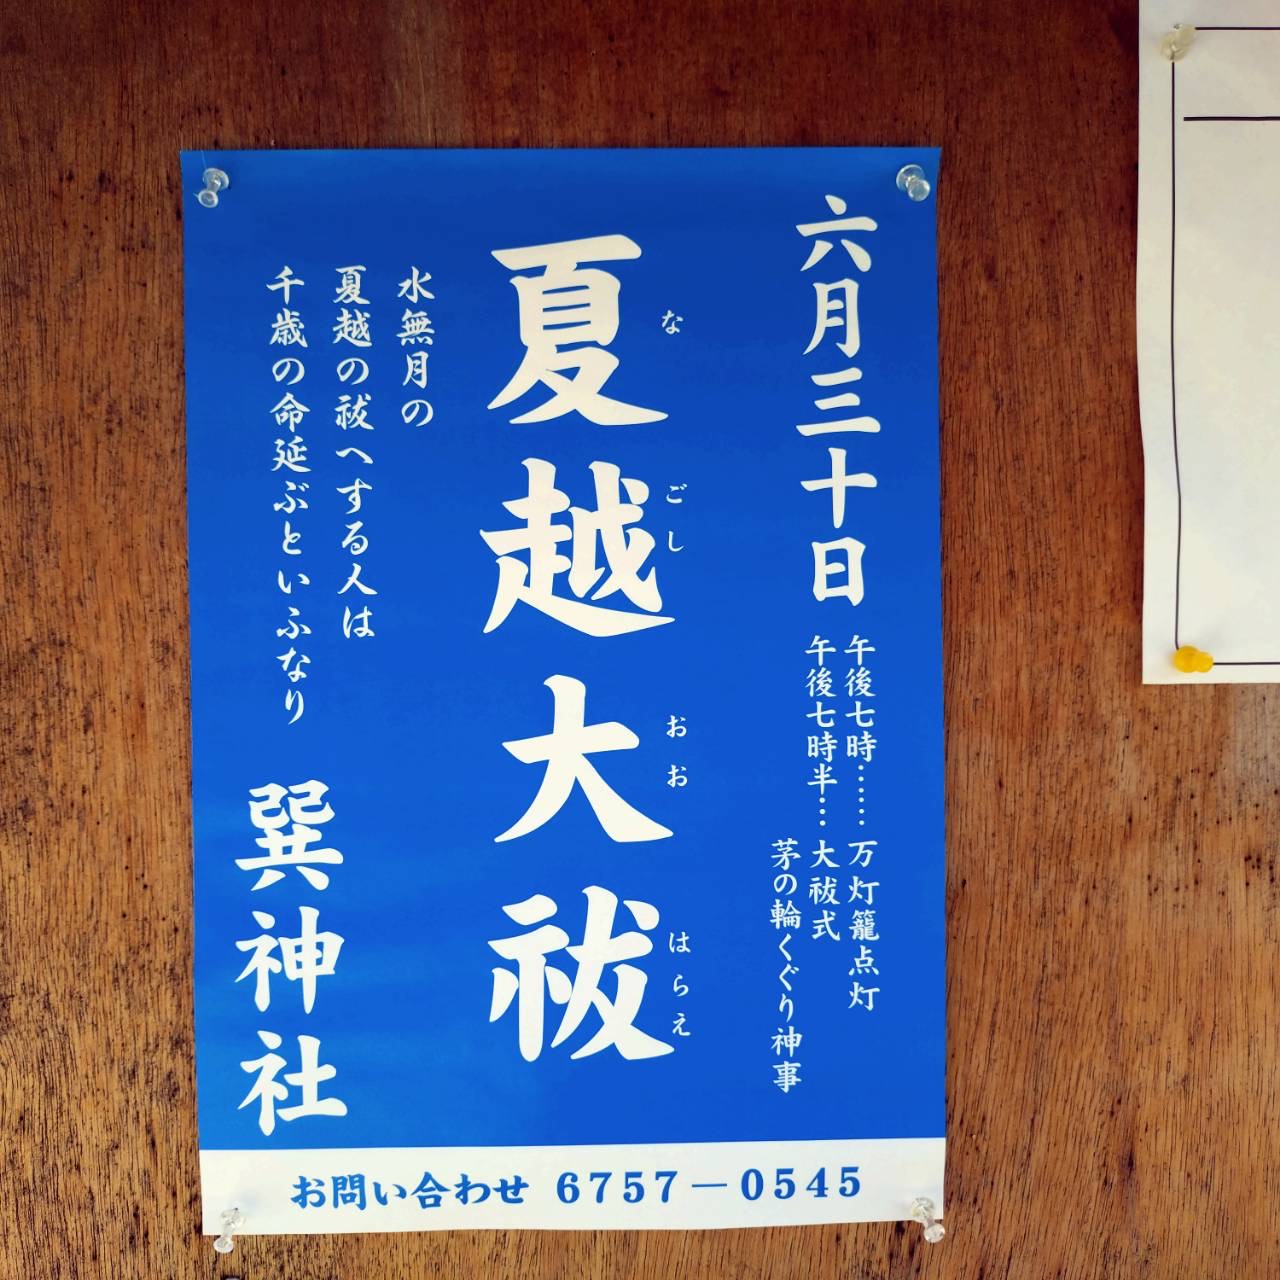 六月三十日
午後七時……万灯籠点灯
午後七時半…大祓式
茅の輪くぐり神事
夏越大祓
なごしおおはらえ
水無月の
夏越の祓へする人は
千歳の命延ぶといふなり
巽神社
お問い合わせ 6757－0545